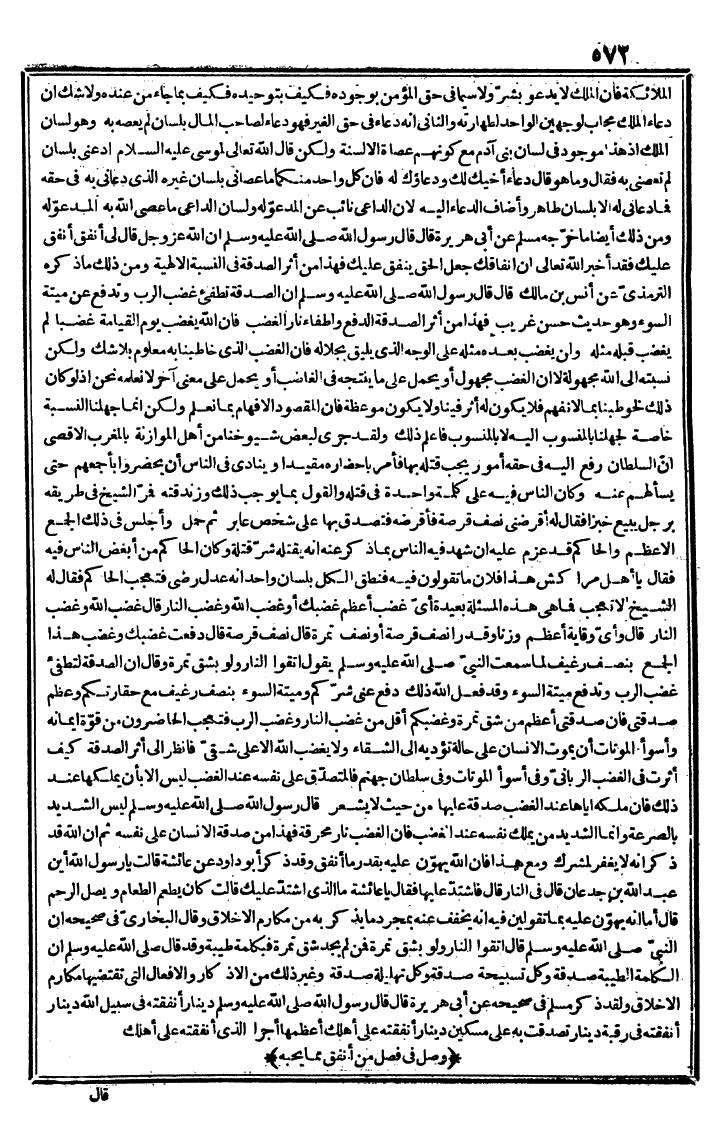 ٥٧٣
الملائكة فان الملك لا يدعو بشر ولا سيما فى حق المؤمن بوجوده فكيف بتوحيده فكيف بما جاء من عنده ولا شك ان
دعاء الملك مجاب لوجهين الواحد لطهارته والثانى انه دعاء فى حق الغير فهو دعاء لصاحب المال بلسان لم يعصه به وهو لسان
الملك اذ هذا موجود فى لسان بنى آدم مع كونهم عصاة الالسنة ولكن قال الله تعالى لموسى عليه السلام ادعنى بلسان
لم تعصنى به فقال وما هو قال دعاء أخيك لك ودعاؤك له فان كل واحد منكما ما عصانى بلسان غيره الذى دعانى به فى حقه
فما دعانى له الا بلسان طاهر وأضاف الدعاء اليه لان الداعى نائب عن المدعو له ولسان الداعى ما عصى الله به المدعو له
ومن ذلك أيضا ما خرّجه مسلم عن أبى هريرة قال قال رسول الله صلى الله عليه وسلم ان الله عز وجل قال لى أنفق أنفق
عليك فقد أخبر الله تعالى ان انفاقك جعل الحق ينفق عليك فهذا من أثر الصدقة فى النسبة الالهية ومن ذلك ما ذكره
الترمذىّ عن أنس بن مالك قال قال رسول الله صلى الله عليه وسلم ان الصدقة تطفئ غضب الرب وتدفع عن ميتة
السوء وهو حديث حسن غريب فهذا من أثر الصدقة الدفع واطفاء نار الغضب فان الله يغضب يوم القيامة غضبا لم
يغضب قبله مثله ولن يغضب بعده مثله على الوجه الذى يليق بجلاله فان الغضب الذى خاطبنا به معلوم بلا شك ولكن
نسبته الى الله مجهولة لا ان الغضب مجهول أو يحمل على ما ينتجه فى الغاضب أو يحمل على معنى آخر لا نعلمه نحن اذ لو كان
ذلك لخوطبنا بما لا نفهم فلا يكون له أثر فينا ولا يكون موعظة فان المقصود الافهام بما نعلم ولكن انما جهلنا النسبة
خاصة لجهلنا بالمنسوب اليه لا بالمنسوب فاعلم ذلك ولقد جرى لبعض شيوخنا من أهل الموازنة بالمغرب الاقصى
انّ السلطان رفع اليه فى حقه أمور يجب قتله بها فأمر باحضاره مقيدا وينادى فى الناس أن يحضروا بأجمعهم حتى
يسألهم عنه وكان الناس فيه على كلمة واحدة فى قتله والقول بما يوجب ذلك وزندقته فمرّ الشيخ فى طريقه
برجل يبيع خبزا فقال له أقرضنى نصف قرصة فأقرضه فتصدق بها على شخص عابر ثم حمل وأجلس فى ذلك الجمع
الاعظم والحاكم قد عزم عليه ان شهد فيه الناس بما ذكر عنه انه يقتله شرّ قتلة وكان الحاكم من أبغض الناس فيه
فقال يا أهل مراكش هذا فلان ما تقولون فيه فنطق الكل بلسان واحد انه عدل رضى فتعجب الحاكم فقال له
الشيخ لا تعجب فما هى هذه المسئلة بعيدة أىّ غضب أعظم غضبك أو غضب الله وغضب النار قال غضب الله وغضب
النار قال وأىّ وقاية أعظم وزنا وقدرا نصف قرصة أو نصف تمرة قال نصف قرصة قال دفعت غضبك وغضب هذا
الجمع بنصف رغيف لما سمعت النبىّ صلى الله عليه وسلم يقول اتقوا النار ولو بشق تمرة وقال ان الصدقة لتطفئ
غضب الرب وتدفع ميتة السوء وقد فعل الله ذلك دفع عنى شرّكم وميتة السوء بنصف رغيف مع حقارتكم وعظم
صدقتى فان صدقتى أعظم من شق تمرة وغضبكم أقل من غضب النار وغضب الرب فتعجب الحاضرون من قوّة ايمانه
وأسوأ الموتات أن يموت الانسان على حالة تؤديه الى الشقاء ولا يغضب الله الا على شقىّ فانظر الى أثر الصدقة كيف
أثرت فى الغضب الربانىّ وفى أسوأ الموتات وفى سلطان جهنم فالمتصدّق على نفسه عند الغضب ليس الا بأن يملكها عند
ذلك فان ملكه اياها عند الغضب صدقة عليها من حيث لا يشعر قال رسول الله صلى الله عليه وسلم ليس الشديد
بالصرعة وانما الشديد من يملك نفسه عند الغضب فان الغضب نار محرقة فهذا من صدقة الانسان على نفسه ثم ان الله قد
ذكر انه لا يغفر لمشرك ومع هذا فان الله يهوّن عليه بقدر ما أنفق وقد ذكر أبو داود عن عائشة قالت يا رسول الله أين
عبد الله بن جدعان قال فى النار قال فاشتدّ عليها فقال يا عائشة ما الذى اشتدّ عليك قالت كان يطعم الطعام ويصل الرحم
قال أما انه يهوّن عليه بما تقولين فيه انه يخفف عنه بمجرد ما يذكر به من مكارم الاخلاق وقال البخارىّ فى صحيحه ان
النبىّ صلى الله عليه وسلم قال اتقوا النار ولو بشق تمرة فمن لم يجد شق تمرة فبكلمة طيبة وقد قال صلى الله عليه وسلم ان
الكلمة الطيبة صدقة وكل تسبيحة صدقة وكل تهليلة صدقة وغير ذلك من الاذكار والافعال التى تقتضيها مكارم
الاخلاق ولقد ذكر مسلم فى صحيحه عن أبى هريرة قال قال رسول الله صلى الله عليه وسلم دينار أنفقته فى سبيل الله دينار
أنفقته فى رقبة دينار تصدقت به على مسكين دينار أنفقته على أهلك أعظمها أجرا الذى أنفقته على أهلك
﴿وصل فى فصل من أنفق مما يحبه﴾
قال